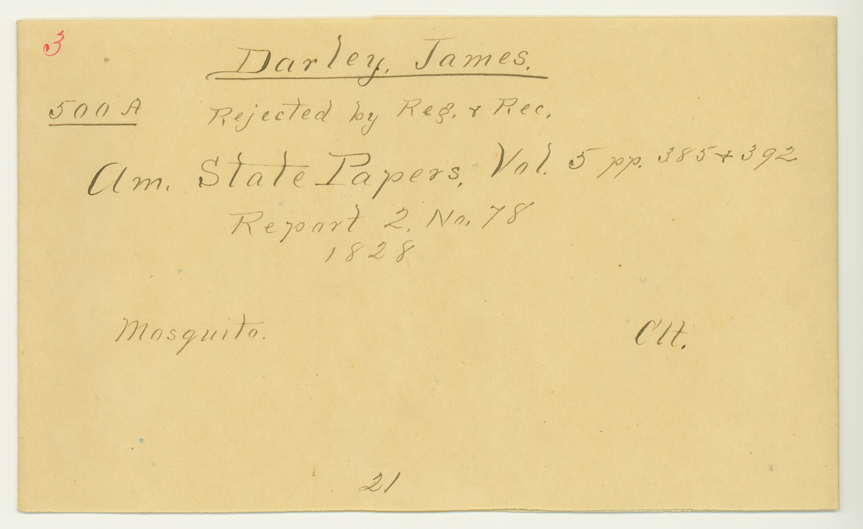 3
Darley, James.
500 A Rejected by Reg. & Rec.
Am. State Papers, Vol. 5 pp. 385 + 392
Report 2, No. 78
1828
Mosquito. Clt.
21